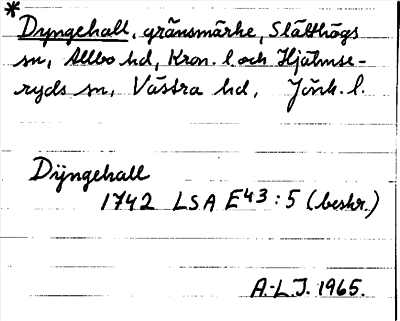 * Dyngehall, gränsmärke, Slätthögs
sn, Allbo hd, Kron. l och Hjälmse-
ryds sn, Västra hd, Jönk. l.
Dÿngehall
1742 LSA E43:5 (beskr.)
A.-L.J. 1965.